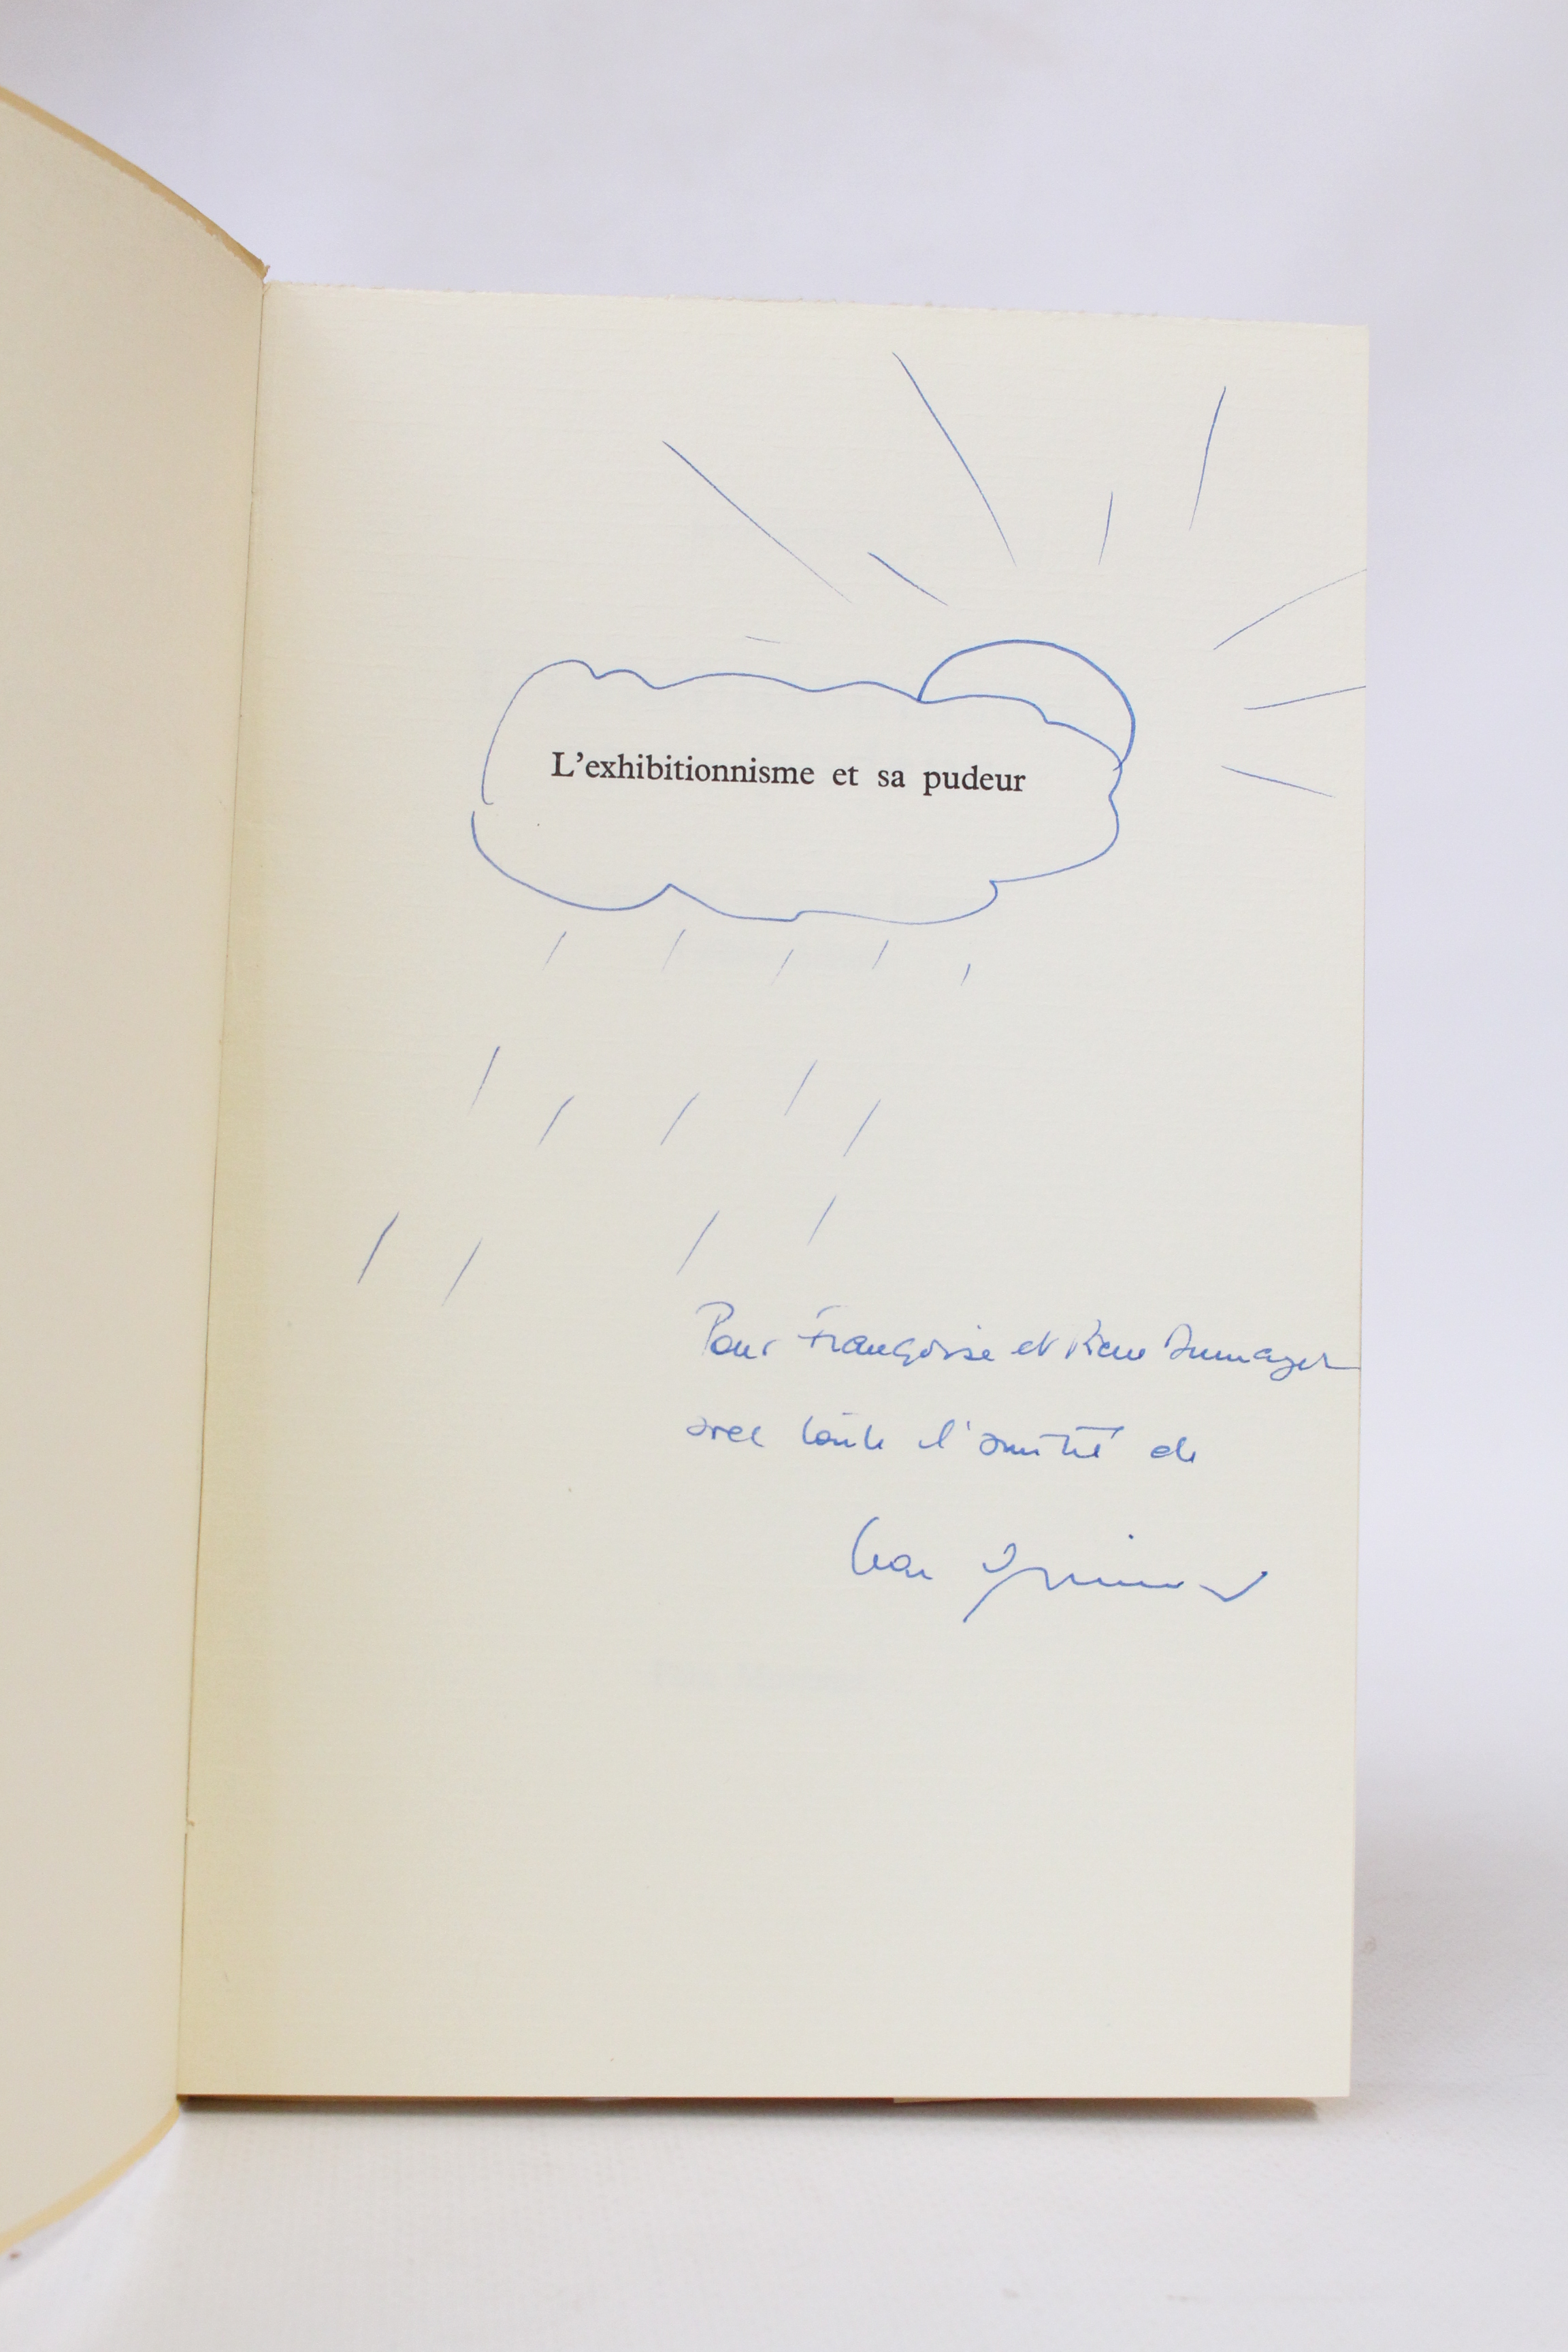 L'exhibitionnisme et sa pudeur
Pour Françoise et Pierre Dumayet
avec toute l'amitié de